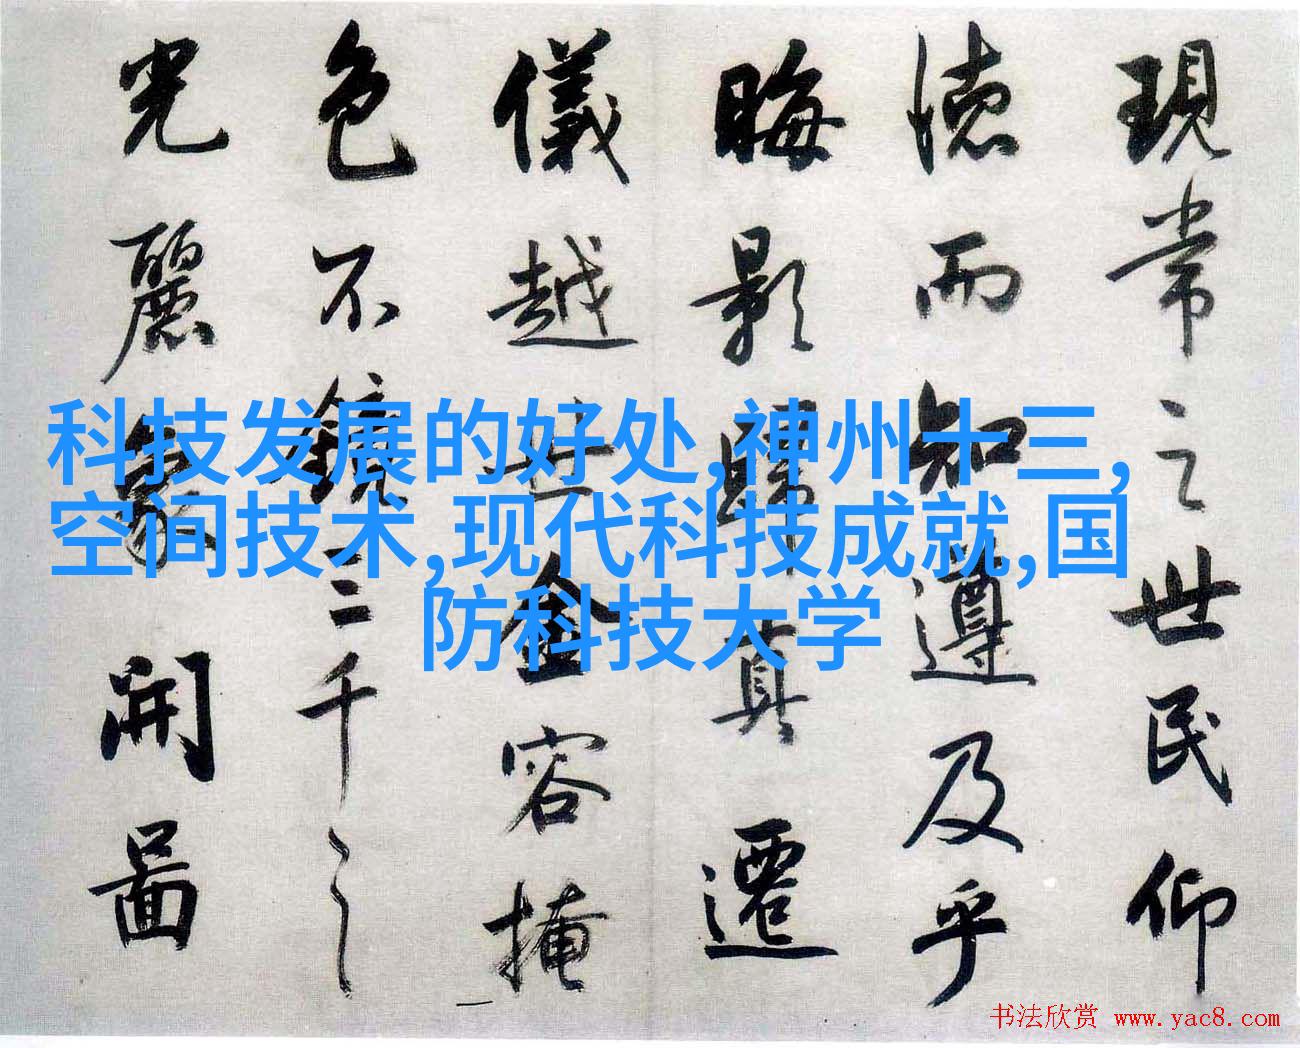 現常之世民仰
德而知遵及乎
晦影歸真遷
儀越世金容掩
色不鏡三千之
光麗象開圖
科技发展的好处,神州十三,
空间技术,现代科技成就,国
防科技大学
书法欣赏 www.yac8.com